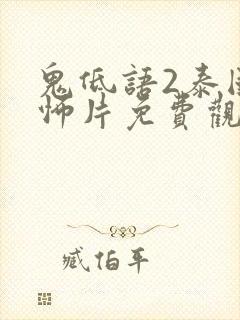 鬼低語2泰國
怖片免費觀
臧伯平